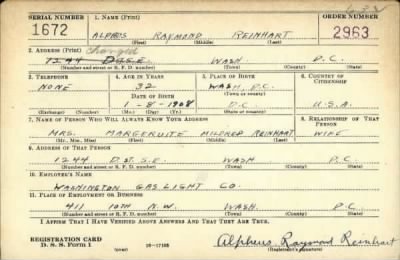 632
SERIAL NUMBER 1. NAME (Print) ORDER NUMBER
1672 ALPHEUS RAYMOND REINHART 2963
(First) (Middle) (Last)
2. ADDRESS (Print) changed
1244 D St. S.E. WASH D.C.
(Number and street or R. F. D. number) (Town) (County) (State)
3. TELEPHONE 4. AGE IN YEARS 5. PLACE OF BIRTH 6. COUNTRY OF CITIZENSHIP
NONE 32 WASH, D.C.
DATE OF BIRTH (Town or county)
1-8-1908 D.C. U.S.A.
(Exchange) (Number) (Mo.) (Day) (Yr.) (State or country)
7. NAME OF PERSON WHO WILL ALWAYS KNOW YOUR ADDRESS 8. RELATIONSHIP OF THAT PERSON
MRS. MARGERUITE MILDRED REINHART WIFE
(Mr., Mrs., Miss) (First) (Middle) (Last)
9. ADDRESS OF THAT PERSON
1244 D St. S.E. WASH D.C.
(Number and street or R. F. D. number) (Town) (County) (State)
10. EMPLOYER'S NAME
WASHINGTON GAS LIGHT CO.
11. PLACE OF EMPLOYMENT OR BUSINESS
411 10TH N.W. WASH. D.C.
(Number and street or R. F. D. number) (Town) (County) (State)
I AFFIRM THAT I HAVE VERIFIED ABOVE ANSWERS AND THAT THEY ARE TRUE.
REGISTRATION CARD
D. S. S. FORM 1 (over) 16-17105 Alpheus Raymond Reinhart
(Registrant's signature)